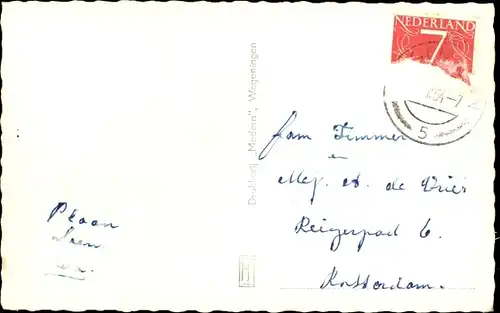 NEDERLAND
7
5
Drukkerij „Modern", Wageningen
Fam Timmer
en
Mej. A. de Vries
Reigerpad 6.
Rotterdam.